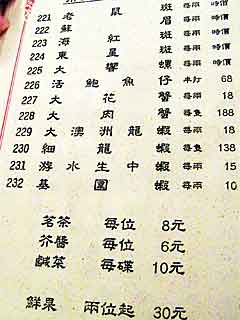 221 老鼠斑 每兩 時價
222 蘇眉 每兩 時價
223 海紅斑 每兩 時價
224 東星斑 每兩 時價
225 大響螺 每兩 時價
226 活鮑魚仔 半打 68
227 大花蟹 每兩 18
228 大肉蟹 每隻 188
229 大澳洲龍蝦 每兩 18
230 細龍蝦 每隻 138
231 游水生中蝦 每兩 15
232 基圍蝦 每兩 10
茗茶 每位 8元
芥醬 每位 6元
鹹菜 每碟 10元
鮮果 兩位起 30元